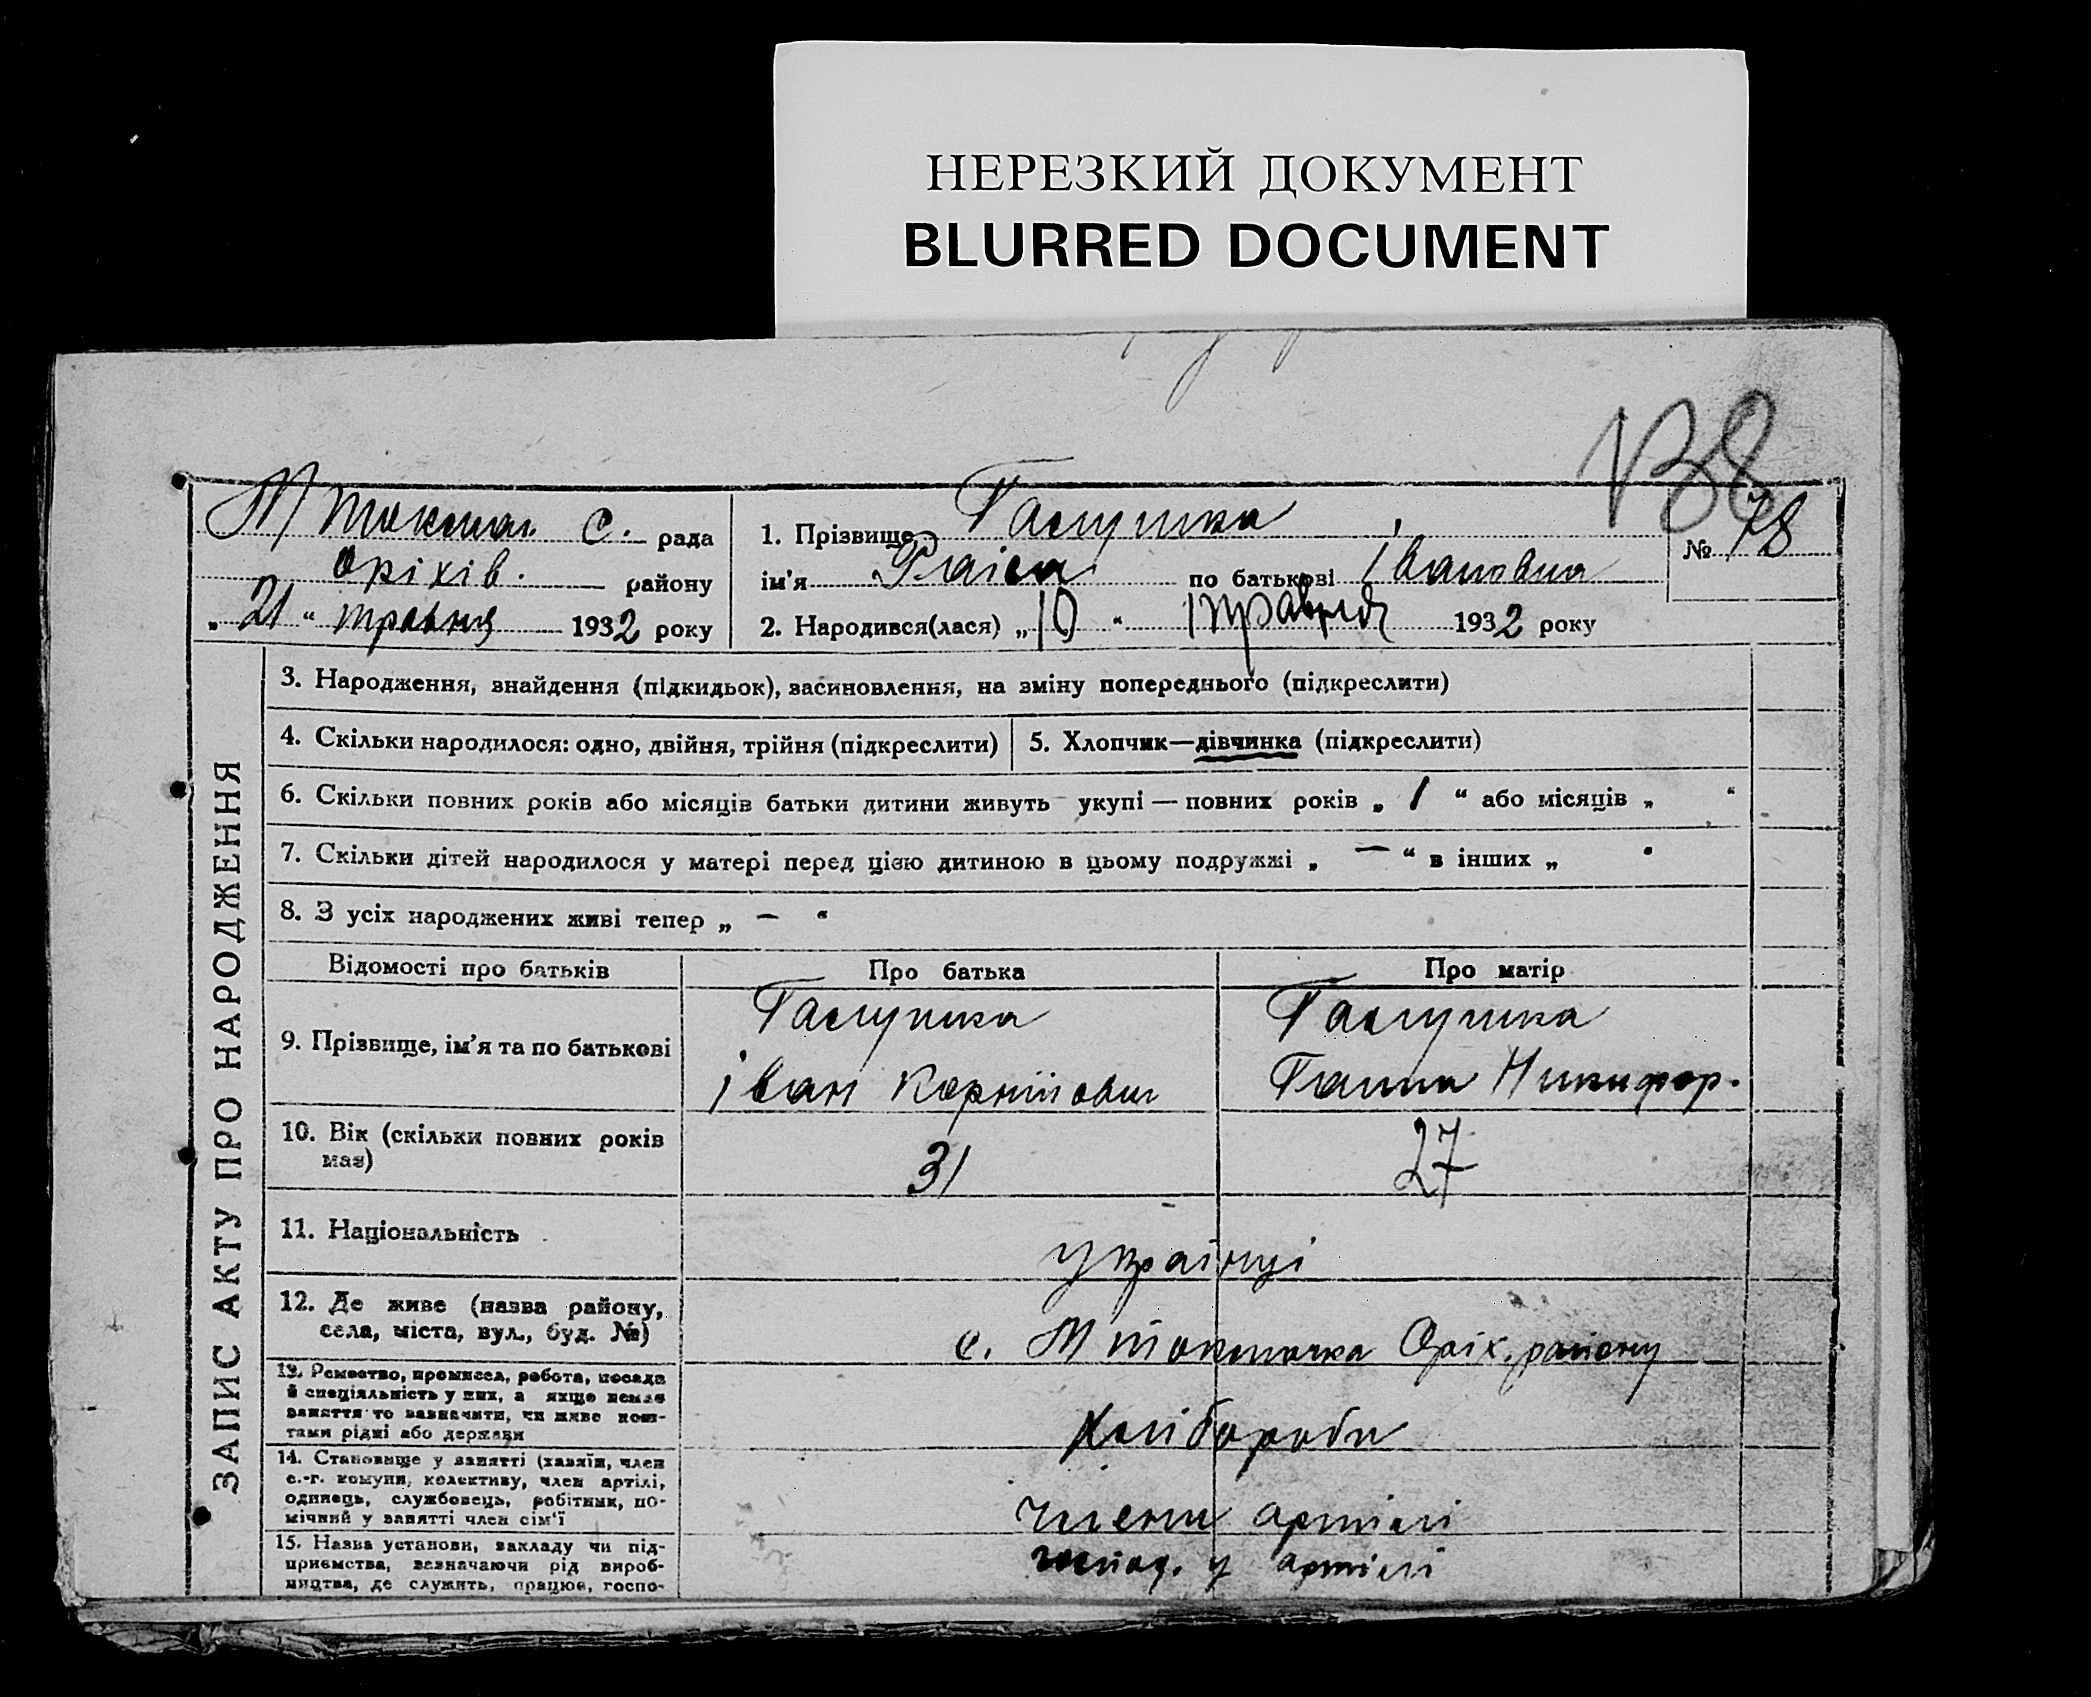 НЕРЕЗКИЙ ДОКУМЕНТ
BLURRED DOCUMENT
138
М Токмач. С. рада
Оріхів. району
„ 21 “ травня 1932 року
1. Прізвище Галушка
ім'я Раіса по батькові Івановна
2. Народився(лася) „ 10 “ травня 1932 року
№ 78
ЗАПИС АКТУ ПРО НАРОДЖЕННЯ
3. Народження, знайдення (підкидьок), засиновлення, на зміну попереднього (підкреслити)
4. Скільки народилося: одно, двійня, трійня (підкреслити)
5. Хлопчик—дівчинка (підкреслити)
6. Скільки повних років або місяців батьки дитини живуть укупі — повних років „ 1 “ або місяців „ “
7. Скільки дітей народилося у матері перед цією дитиною в цьому подружжі „ — “ в інших „ “
8. З усіх народжених живі тепер „ — “
Відомості про батьків Про батька Про матір
9. Прізвище, ім'я та по батькові
Галушка
іван Корнійович
Галушка
Ганна Никифор.
10. Вік (скільки повних років має)
31
27
11. Національність
українці
12. Де живе (назва району,
села, міста, вул., буд. №)
с. М Токмачка Оріх. району
13. Ремество, промисел, робота, посада
й спеціяльність у них, а якщо немає
заняття то зазначити, чи живе кош-
тами рідні або держави
хлібороби
14. Становище у занятті (хазяїн, член
с.-г. комуни, колективу, член артілі,
одинець, службовець, робітник, по-
мічний у занятті член сім'ї
члени артілі
15. Назва установи, закладу чи під-
приємства, зазначаючи рід вироб-
ництва, де служить, працює, госпо-
у артілі